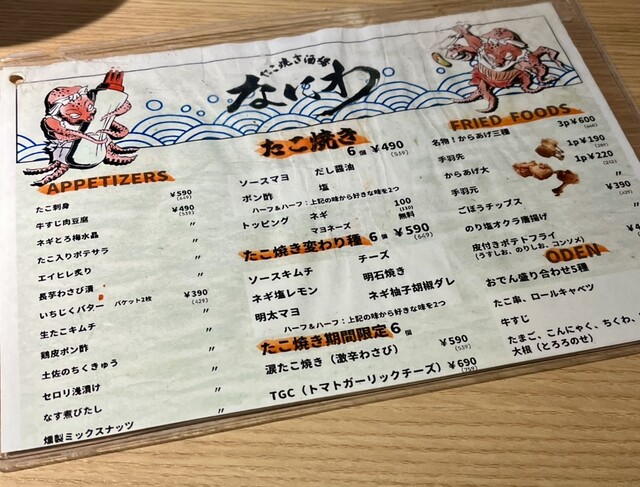 たこ焼き酒場
なにわ
APPETIZERS
たこ刺身 ¥590 (649)
牛すじ肉豆腐 ¥490 (539)
ネギとろ梅水晶 〃
たこ入りポテサラ 〃
エイヒレ炙り 〃
長芋わさび漬 〃
いちじくバター バケット2枚 ¥390 (429)
生たこキムチ 〃
鶏皮ポン酢 〃
土佐のちくきゅう 〃
セロリ浅漬け 〃
なす煮びたし 〃
燻製ミックスナッツ 〃
たこ焼き 6個 ¥490 (539)
ソースマヨ だし醤油
ポン酢 塩
ハーフ&ハーフ:上記の味から好きな味を2つ
トッピング ネギ 100 (110)
マヨネーズ 無料
たこ焼き変わり種 6個 ¥590 (649)
ソースキムチ チーズ
ネギ塩レモン 明石焼き
明太マヨ ネギ柚子胡椒ダレ
ハーフ&ハーフ:上記の味から好きな味を2つ
たこ焼き期間限定 6個
涙たこ焼き(激辛わさび) ¥590 (539)
TGC(トマトガーリックチーズ) ¥690 (759)
FRIED FOODS
名物!からあげ三種 3p¥600 (660)
手羽先 1p¥190
からあげ大 1p¥220
手羽元 ¥390
ごぼうチップス
のり塩オクラ唐揚げ
皮付きポテトフライ
(うすしお、のりしお、コンソメ)
ODEN
おでん盛り合わせ5種
たこ串、ロールキャベツ
牛すじ
たまご、こんにゃく、ちくわ、
大根(とろろのせ)